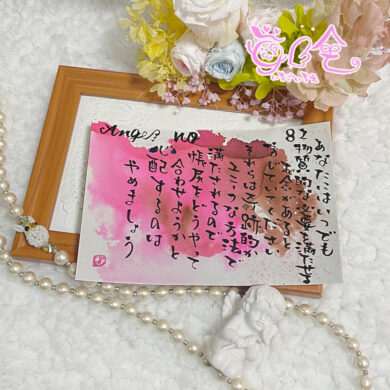 Angel no 82
あなたにはいつでも
物質的な必要を満たせる
があると
信じていてください
それらは奇跡的か
ユニークな方法で
満たされるので
帳尻をどうやって
合わせようかと
心配するのは
やめましょう